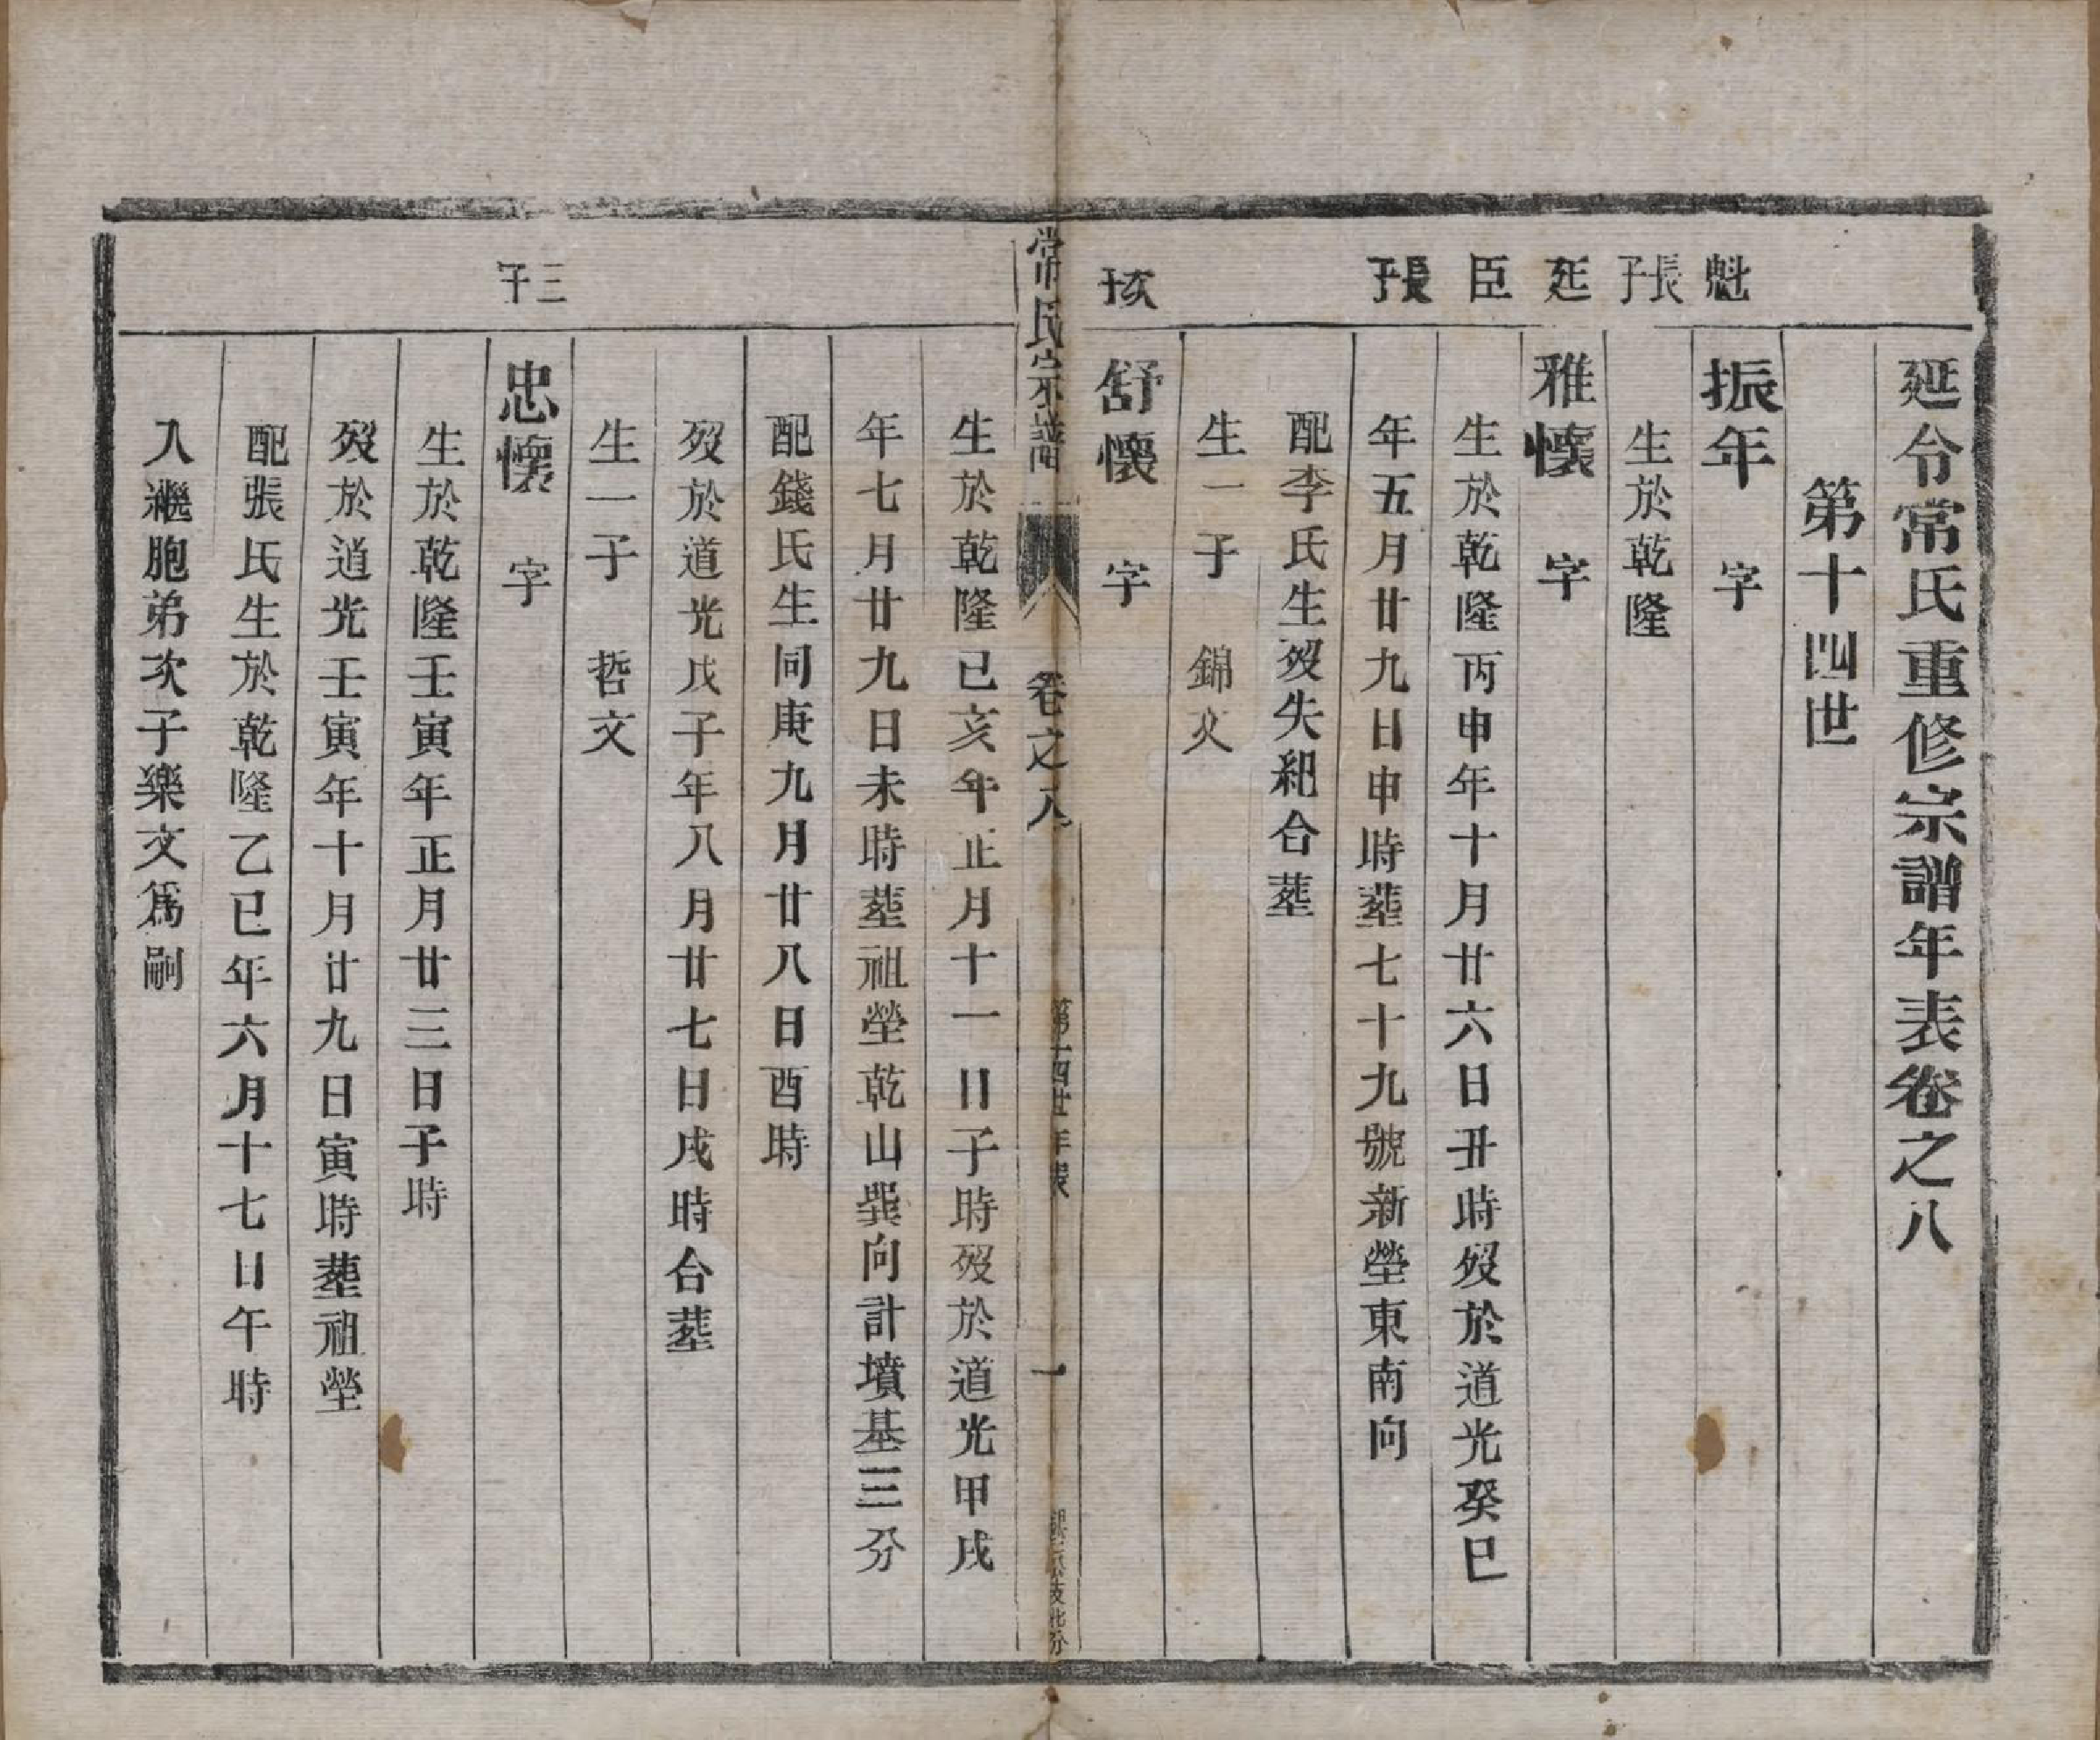 延令常氏重修宗譜年表卷之八
第十四世
魁
長子
振年 字
生於乾隆
廷
臣
長子
雅懷 字
生於乾隆丙申年十月廿六日丑時歿於道光癸巳
年五月廿九日申時塟七十九號新塋東南向
配李氏生歿失紀合塟
生一子 錦文
次子
舒懷 字
常氏宗譜
卷之八
第十四世年表
一
生於乾隆己亥年正月十一日子時歿於道光甲戌
年七月廿九日未時塟祖塋乾山巽向計墳基三分
配錢氏生同庚九月廿八日酉時
歿於道光戊子年八月廿七日戌時合塟
生一子 哲文
三子
忠懷 字
生於乾隆壬寅年正月廿三日子時
歿於道光壬寅年十月廿九日寅時塟祖塋
配張氏生於乾隆乙巳年六月十七日午時
入繼胞弟次子樂文爲嗣